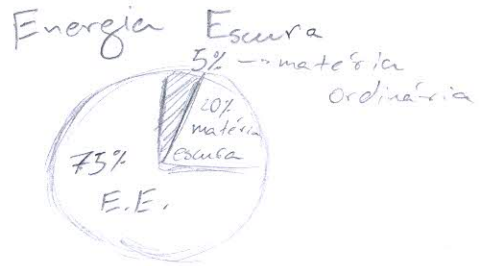 Energia Escura
5% — matéria
ordinária
20%
matéria
escura
75%
E.E.